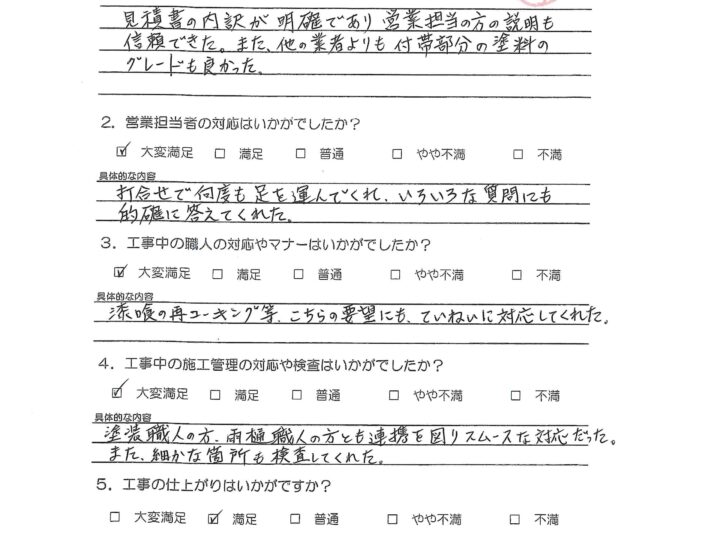 見積書の内訳が明確であり営業担当の方の説明も
信頼できた。また、他の業者よりも付帯部分の塗料の
グレードも良かった。
2．営業担当者の対応はいかがでしたか？
☑ 大変満足 □ 満足 □ 普通 □ やや不満 □ 不満
具体的な内容
打合せで何度も足を運んでくれ、いろいろな質問にも
的確に答えてくれた。
3．工事中の職人の対応やマナーはいかがでしたか？
☑ 大変満足 □ 満足 □ 普通 □ やや不満 □ 不満
具体的な内容
漆喰の再コーキング等、こちらの要望にも、ていねいに対応してくれた。
4．工事中の施工管理の対応や検査はいかがでしたか？
☑ 大変満足 □ 満足 □ 普通 □ やや不満 □ 不満
具体的な内容
塗装職人の方、雨樋職人の方とも連携を図りスムースな対応だった。
また、細かな箇所も検査してくれた。
5．工事の仕上がりはいかがですか？
□ 大変満足 ☑ 満足 □ 普通 □ やや不満 □ 不満